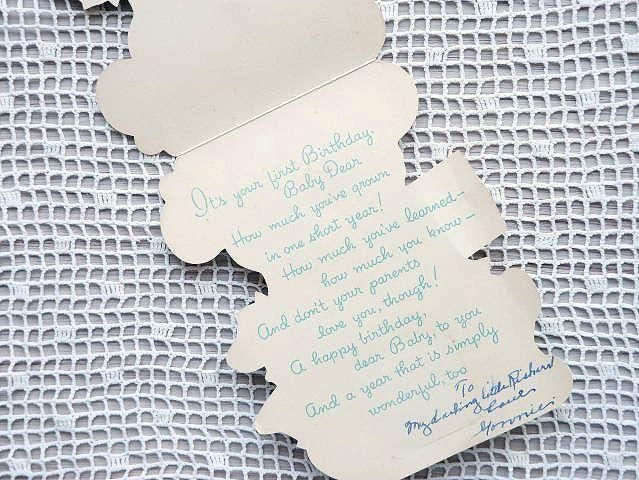 It's your first Birthday
Baby Dear
How much you've grown
in one short year!
How much you've learned—
how much you know—
And don't your parents
love you, though!
A happy birthday,
dear Baby, to you
And a year that is simply
wonderful, too
To
My darling Little Richard
Love